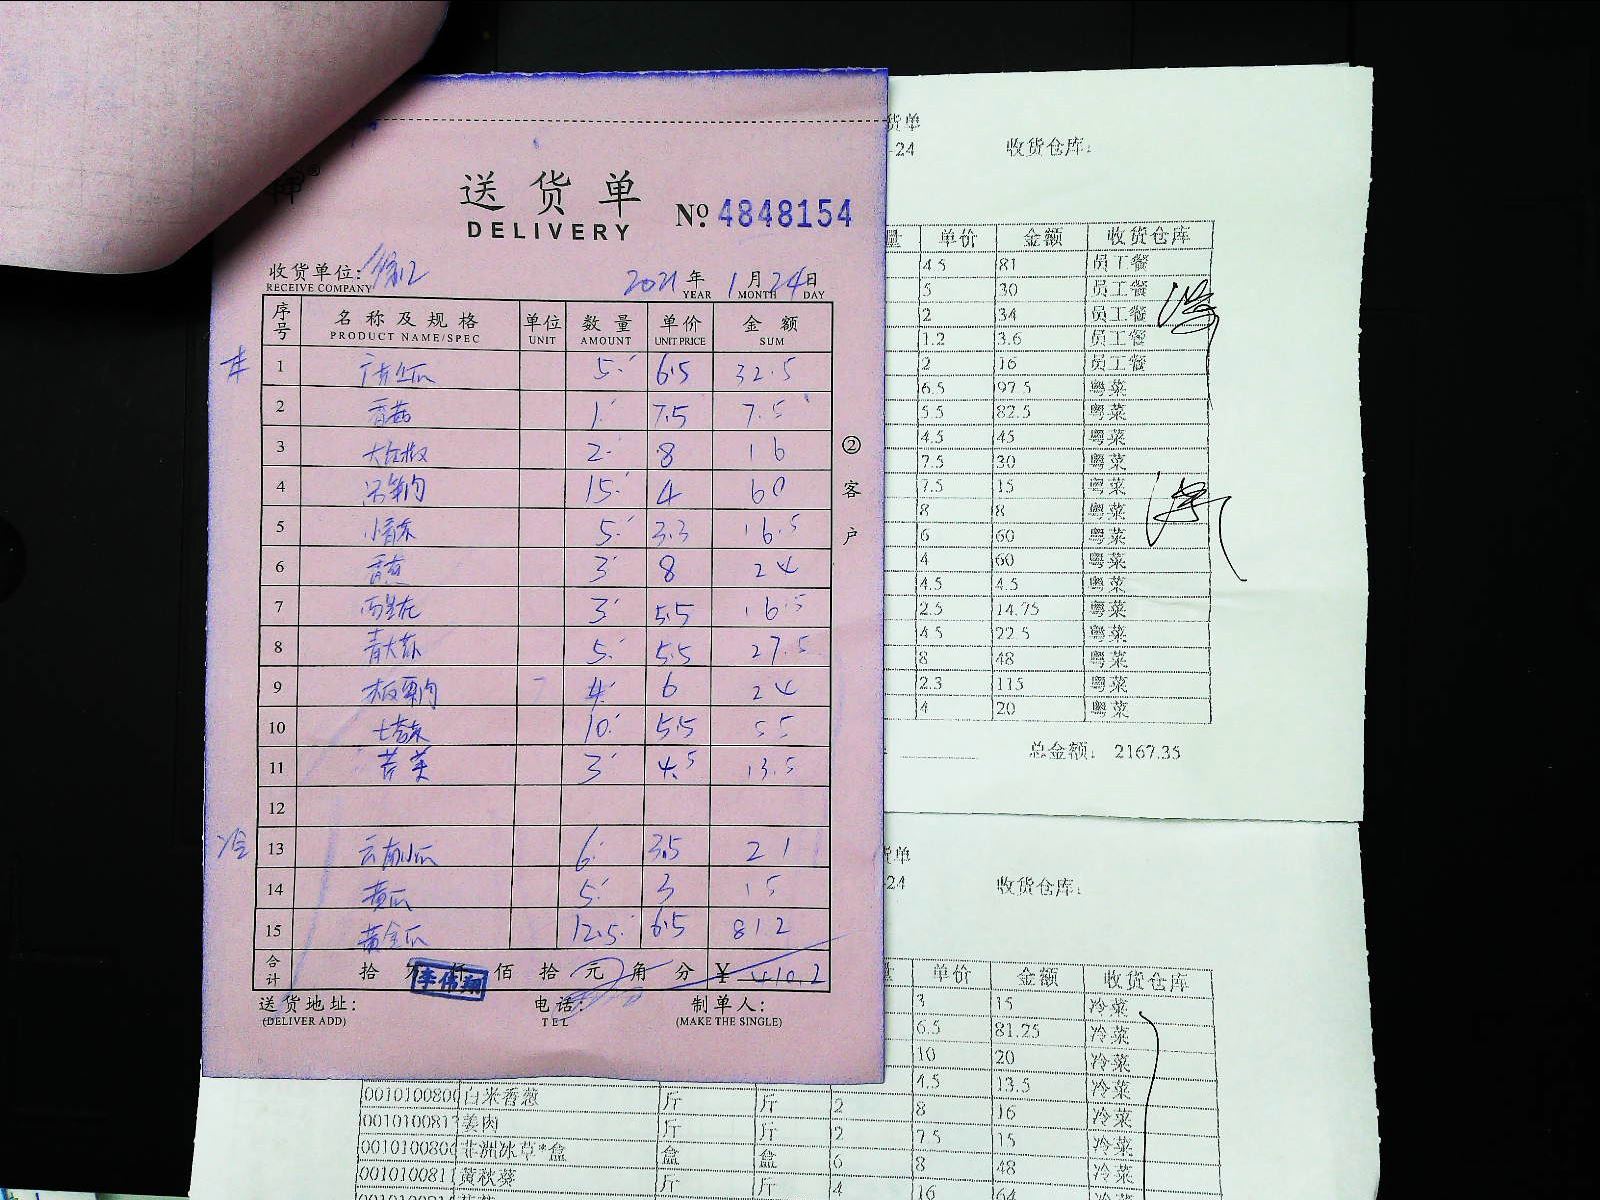 送货单
DELIVERY
№ 4848154
收货单位:
RECEIVE COMPANY
2021 年 1 月 24 日
YEAR MONTH DAY
序号 名称及规格 单位 数量 单价 金额
PRODUCT NAME/SPEC UNIT AMOUNT UNIT PRICE SUM
1 5 6.5 32.5
2 香菇 1 7.5 7.5
3 大红椒 2 8 16
4 15 4 60
5 小青菜 5 3.3 16.5
6 3 8 24
7 西生菜 3 5.5 16.5
8 青大蒜 5 5.5 27.5
9 板栗肉 4 6 24
10 10 5.5 55
11 3 4.5 13.5
12
冷
13 云南小瓜 6 3.5 21
14 黄瓜 5 3 15
15 黄金瓜 12.5 6.5 81.2
合计 拾 万 仟 佰 拾 元 角 分 ¥ 410.2
李伟翔
送货地址: 电话: 制单人:
(DELIVER ADD) TEL (MAKE THE SINGLE)
②客户
货单
-24 收货仓库:
量 单价 金额 收货仓库
4.5 81 员工餐
5 30 员工餐
2 34 员工餐
1.2 3.6 员工餐
2 16 员工餐
6.5 97.5 粤菜
5.5 82.5 粤菜
4.5 45 粤菜
7.5 30 粤菜
7.5 15 粤菜
8 8 粤菜
6 60 粤菜
4 60 粤菜
4.5 4.5 粤菜
2.5 14.75 粤菜
4.5 22.5 粤菜
8 48 粤菜
2.3 115 粤菜
4 20 粤菜
总金额: 2167.35
货单
-24 收货仓库:
量 单价 金额 收货仓库
3 15 冷菜
6.5 81.25 冷菜
10 20 冷菜
4.5 13.5 冷菜
0010100800 白米香葱 斤 斤 2 8 16 冷菜
001010081 姜肉 斤 斤 2 7.5 15 冷菜
0010100800 非洲冰草*盒 盒 盒 6 8 48 冷菜
0010100811 黄秋葵 斤 斤 4 16 64 冷菜